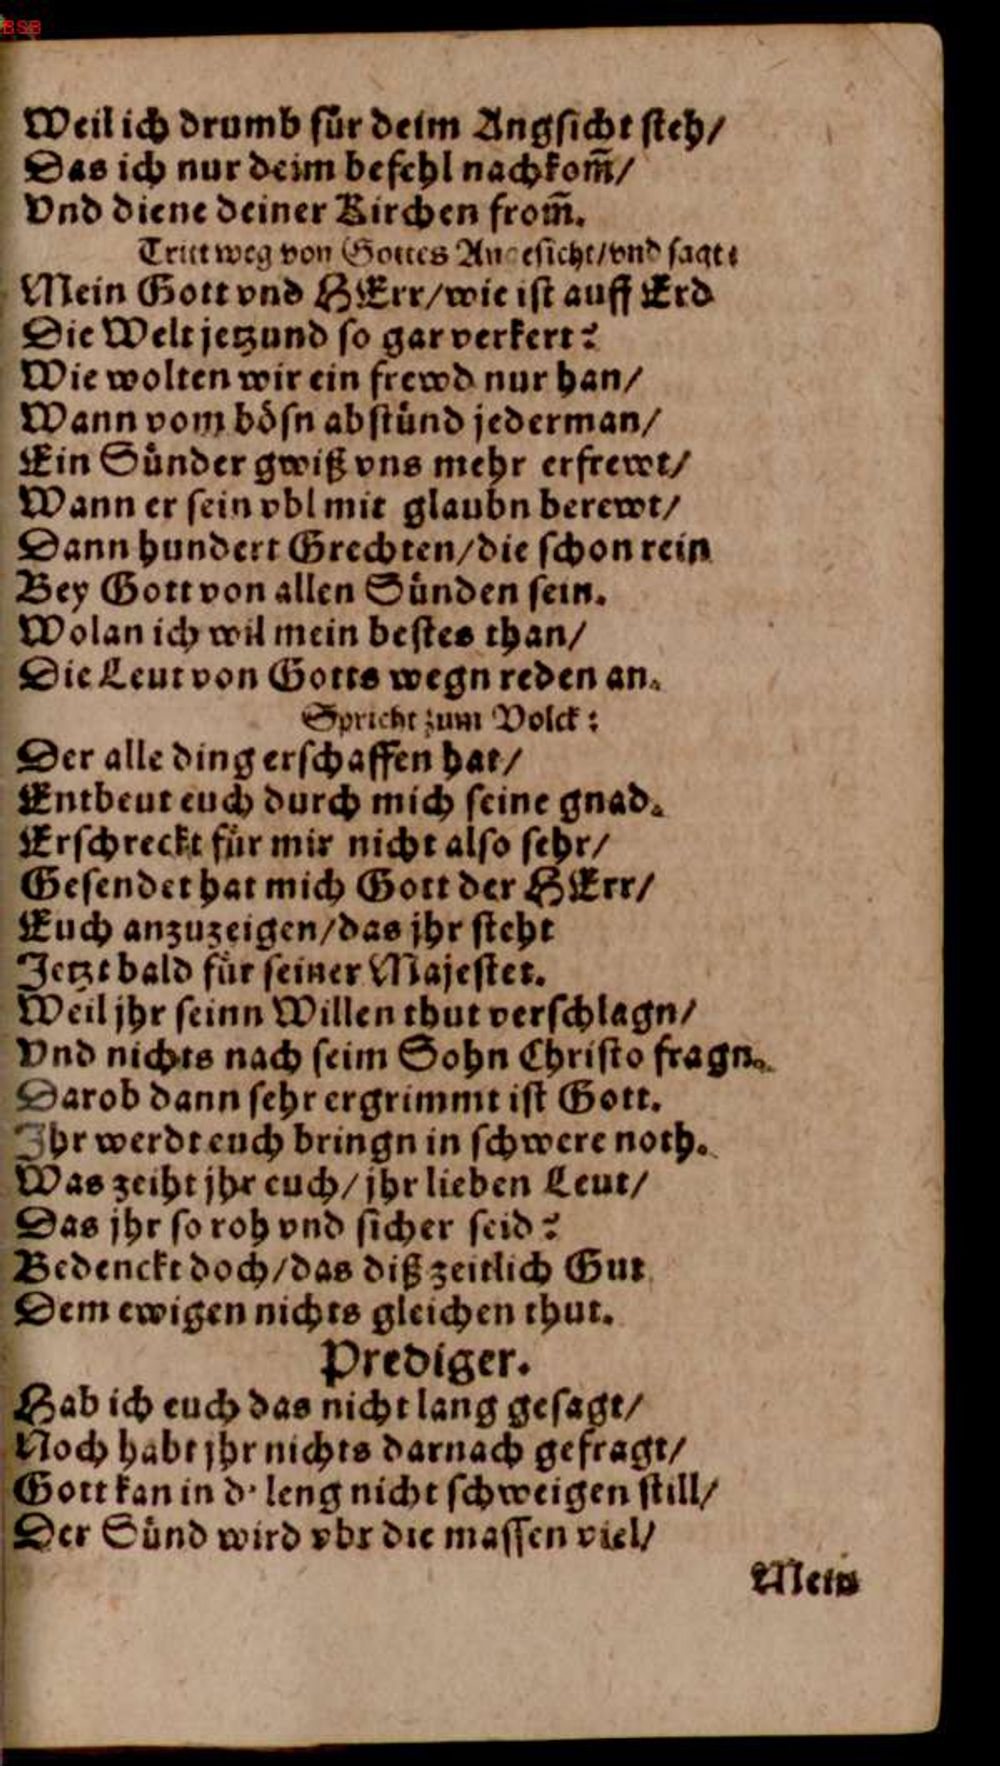 BSB
Weil ich drumb für deim Angsicht steh/
Das ich nur deim befehl nachkom̃/
Vnd diene deiner Kirchen from̃.
Tritt weg von Gottes Angesicht/vnd sagt:
Mein Gott vnd HErr/wie ist auff Erd
Die Welt jetzund so gar verkert?
Wie wolten wir ein frewd nur han/
Wann vom bösn abstünd jederman/
Ein Sünder gwiß vns mehr erfrewt/
Wann er sein vbl mit glaubn berewt/
Dann hundert Grechten/die schon rein
Bey Gott von allen Sünden sein.
Wolan ich wil mein bestes than/
Die Leut von Gotts wegn reden an.
Spricht zum Volck:
Der alle ding erschaffen hat/
Entbeut euch durch mich seine gnad.
Erschreckt für mir nicht also sehr/
Gesendet hat mich Gott der HErr/
Euch anzuzeigen/das jhr steht
Jetzt bald für seiner Majestet.
Weil jhr seinn Willen thut verschlagn/
Vnd nichts nach seim Sohn Christo fragn.
Darob dann sehr ergrimmt ist Gott.
Jhr werdt euch bringn in schwere noth.
Was zeiht jhr euch/jhr lieben Leut/
Das jhr so roh vnd sicher seid?
Bedenckt doch/das diß zeitlich Gut
Dem ewigen nichts gleichen thut.
Prediger.
Hab ich euch das nicht lang gesagt/
Noch habt jhr nichts darnach gefragt/
Gott kan in d' leng nicht schweigen still/
Der Sünd wird vbr die massen viel/
Mein